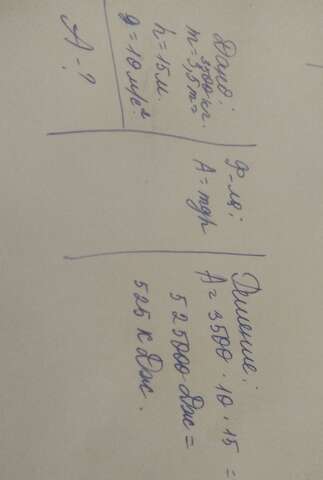 Дано:
3500 кг.
m = 3,5т =
h = 15м.
g = 10м/с²
A - ?
Ф-ла:
A = mgh
Решение:
A = 3500 · 10 · 15 =
525000 Дж =
525 кДж.